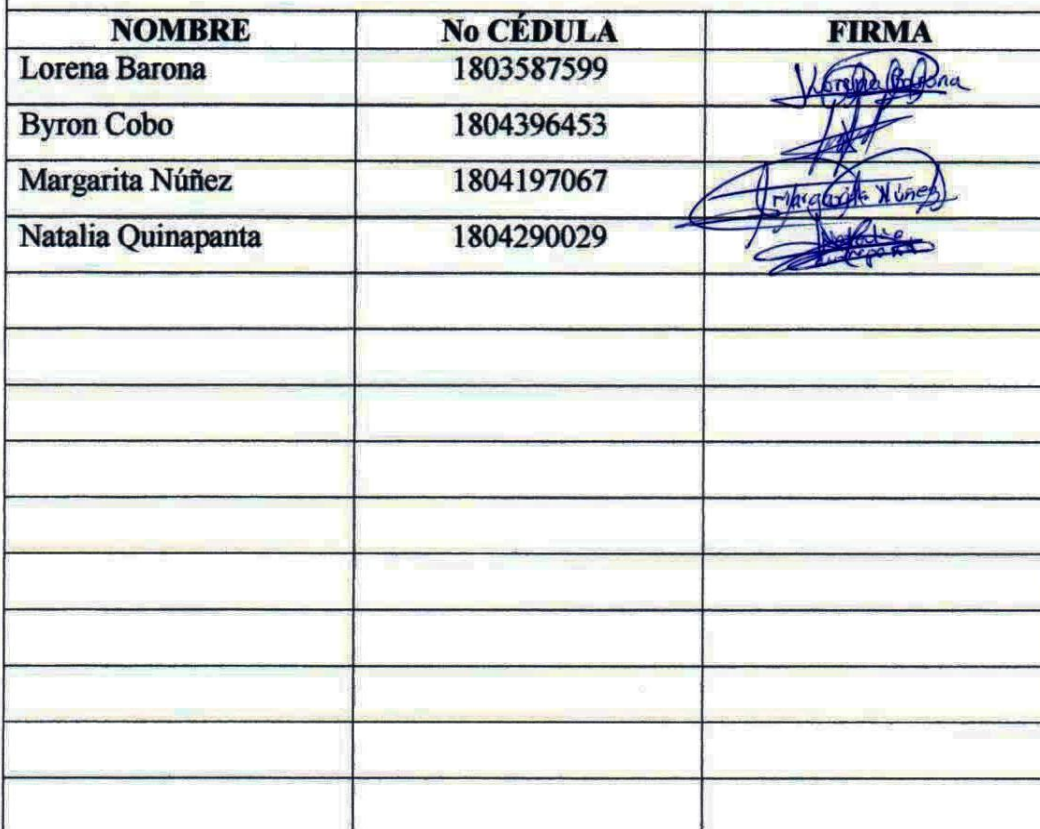 NOMBRE No CÉDULA FIRMA
Lorena Barona 1803587599 Lorena Barona
Byron Cobo 1804396453
Margarita Núñez 1804197067 Margarita Núñez
Natalia Quinapanta 1804290029 Natalia
Quinapanta